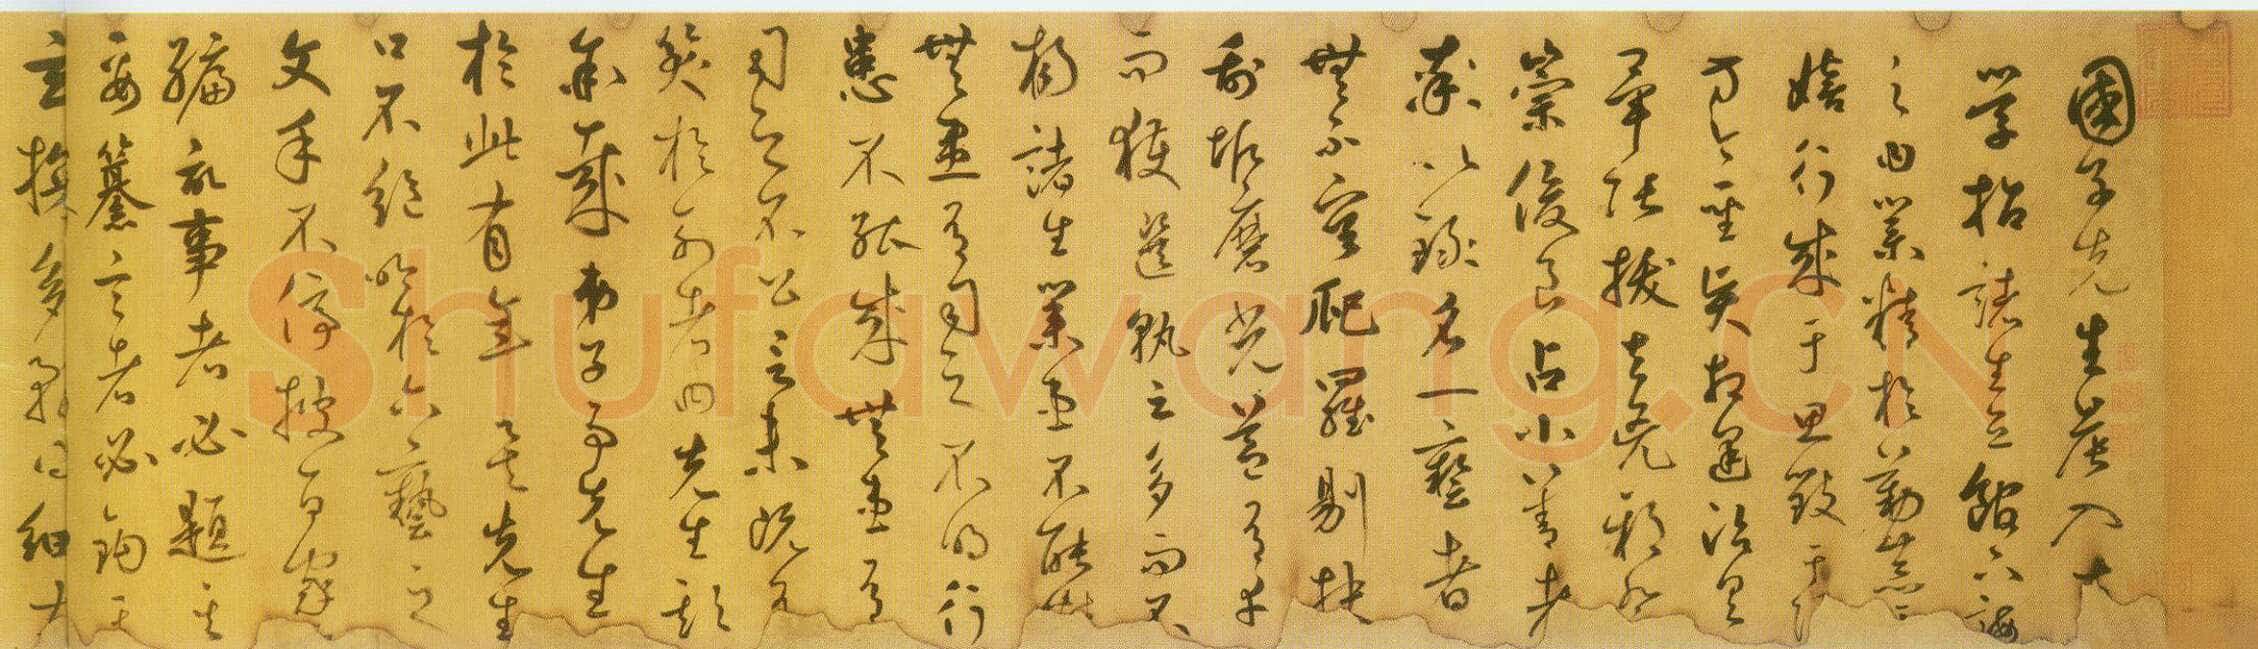 國子先生晨入大
學招諸生立館下誨
之曰業精於勤荒於
嬉行成于思毀于
方今聖賢相逢治具
畢張拔去兇邪登
崇俊良占小善者
率以錄名一藝者
無不庸爬羅剔抉
刮垢磨光蓋有幸
而獲選孰云多而不
揚諸生業患不能精
無患有司之不明行
患不能成無患有
司之不公言未既有
笑於列者曰先生欺
余哉弟子事先生
於此有年矣先生
口不絕吟於六藝之
文手不停披百家
編記事者必題其
要纂言者必鉤其
玄多務得細大
Shufawang.CN